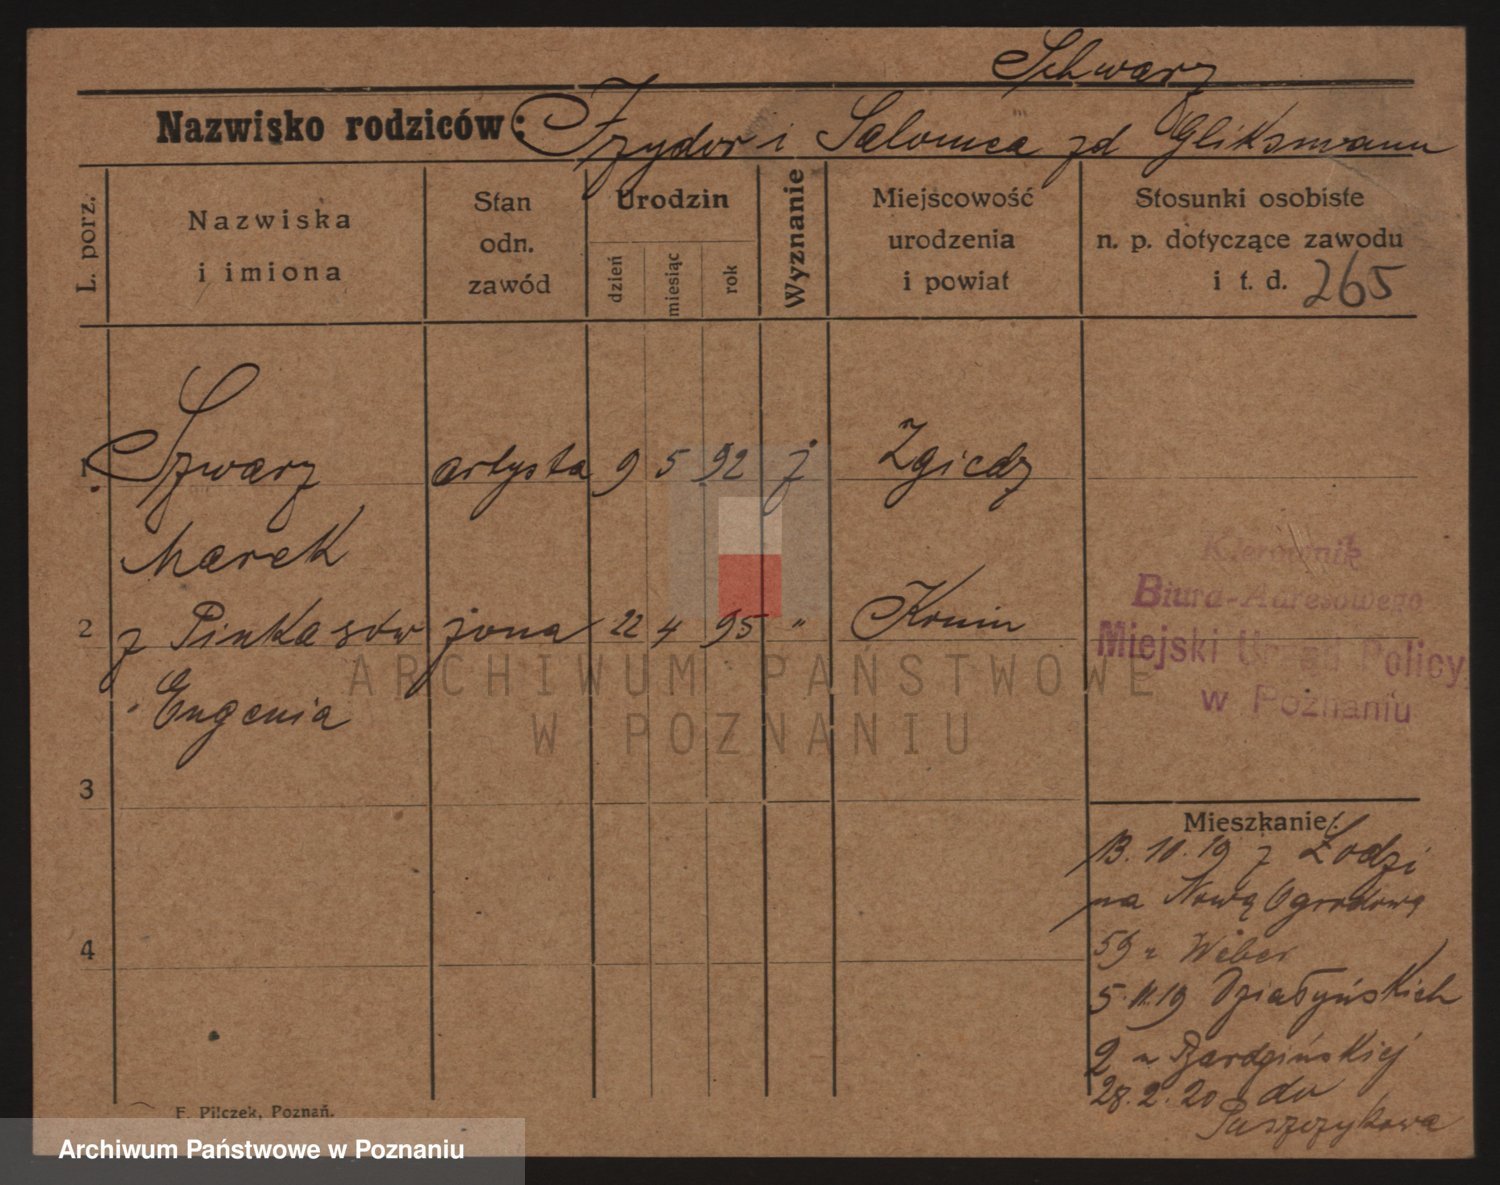 Schwarz
Nazwisko rodziców: Izydor i Salomea zd Gliksmann
L. porz.
Nazwiska
i imiona
Stan
odn.
zawód
Urodzin
dzień
miesiąc
rok
Wyznanie
Miejscowość
urodzenia
i powiat
Stosunki osobiste
n. p. dotyczące zawodu
i t. d. 265
1 Szwarz artysta 9 5 92 j Zgierz
Marek
2 z Pinkasów żona 22 4 95 " Konin
Eugenia
3
4
Kierownik
Biura-Adresowego
Miejski Urząd Policy
w Poznaniu
Mieszkanie:
13. 10. 19 z Łodzi
na Nową Ogrodową
59 u Weber
5. 11. 19 Działyńskich
2 u Bardzińskiej
28. 2. 20 do
Puszczykowa
F. Pilczek, Poznań.
ARCHIWUM PAŃSTWOWE
W POZNANIU
Archiwum Państwowe w Poznaniu